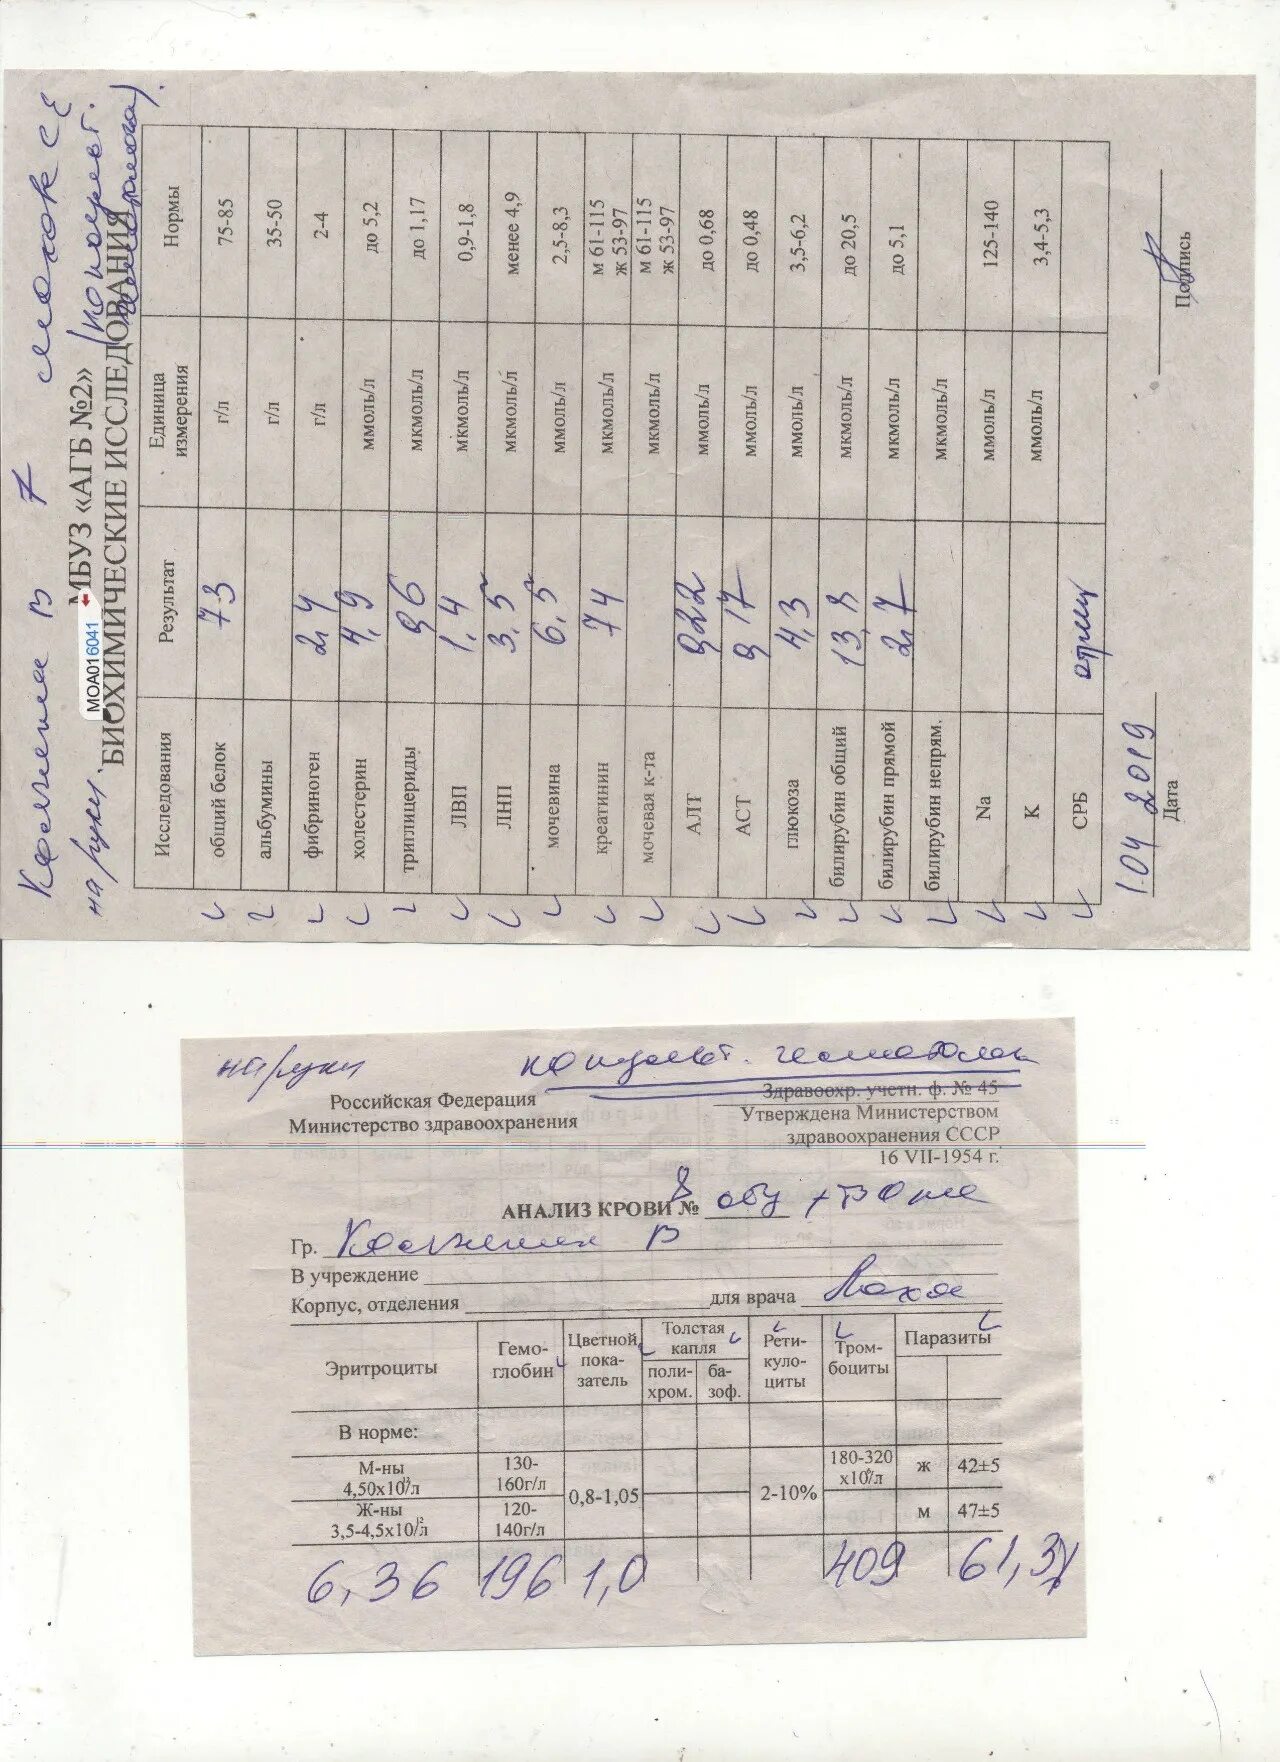 на руки
МБУЗ «АГБ №2»
МОА016041
БИОХИМИЧЕСКИЕ ИССЛЕДОВАНИЯ
Исследования Результат Единица измерения Нормы
общий белок 73 г/л 75-85
альбумины г/л 35-50
фибриноген 2,4 г/л 2-4
холестерин 4,9 ммоль/л до 5,2
триглицериды 96 мкмоль/л до 1,17
ЛВП 1,4 мкмоль/л 0,9-1,8
ЛНП 3,5 мкмоль/л менее 4,9
мочевина 6,5 ммоль/л 2,5-8,3
креатинин 74 мкмоль/л м 61-115 ж 53-97
мочевая к-та мкмоль/л м 61-115 ж 53-97
АЛТ 922 ммоль/л до 0,68
АСТ 917 ммоль/л до 0,48
глюкоза 4,3 ммоль/л 3,5-6,2
билирубин общий 13,8 мкмоль/л до 20,5
билирубин прямой 2,7 мкмоль/л до 5,1
билирубин непрям. мкмоль/л
Na ммоль/л 125-140
К ммоль/л 3,4-5,3
СРБ отриц
1.04 2019
Дата Подпись
на руки
Российская Федерация
Министерство здравоохранения
Здравоохр. учетн. ф. № 45
Утверждена Министерством
здравоохранения СССР
16 VII-1954 г.
АНАЛИЗ КРОВИ №
Гр. В
В учреждение
Корпус, отделения для врача
Эритроциты Гемоглобин Цветной показатель Толстая капля Ретикулоциты Тромбоциты Паразиты
поли-хром. ба-зоф.
В норме:
М-ны 4,50х10¹²/л 130-160г/л 0,8-1,05 2-10% 180-320 х10⁹/л ж 42±5
Ж-ны 3,5-4,5х10¹²/л 120-140г/л м 47±5
6,36 196 1,0 409 61,3